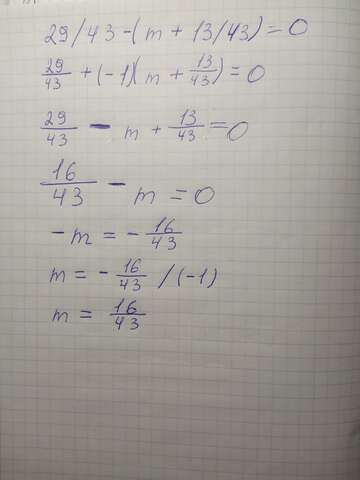 29/43-(m+13/43)=0
29/43+(-1)(m+13/43)=0
29/43-m+13/43=0
16/43-m=0
-m=-16/43
m=-16/43/(-1)
m=16/43